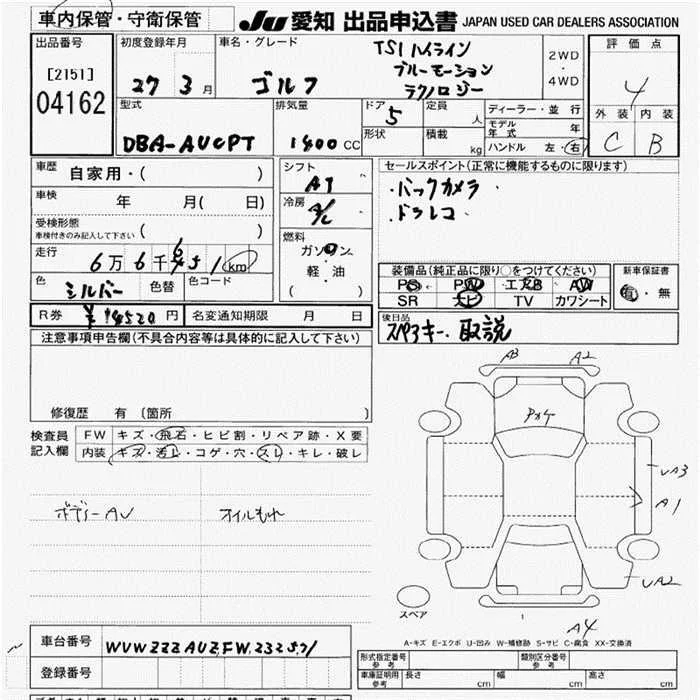 車内保管・守衛保管
JU 愛知 出品申込書 JAPAN USED CAR DEALERS ASSOCIATION
出品番号 [2151] 04162
初度登録年月 27 3 月
車名・グレード ゴルフ
TSI ハイライン
ブルーモーション
テクノロジー
2WD ・ 4WD
評価点 4
外装 内装
C B
型式 DBA-AUCPT
排気量 1400 CC
ドア 5
形状
定員 人
積載 kg
ディーラー・並行
モデル年式 年
ハンドル 左・右
車歴 自家用・( )
車検 年 月( 日)
受検形態 車検付きのみ記入して下さい ( )
走行 6万6千 51 km
色 シルバー 色替 色コード
シフト AT
冷房 A/C
燃料 ガソリン 軽・油 ( )
セールスポイント(正常に機能するものに限ります)
・バックカメラ
・ドラレコ
装備品(純正品に限り○をつけてください)
PS PW エアB AW
SR ナビ TV カワシート
新車保証書 有・無
R券 ¥ 14520 円 名変通知期限 月 日
後日品 スペアキー・取説
注意事項申告欄(不具合内容等は具体的に記入して下さい)
修復歴 有 〔箇所 〕
検査員記入欄
FW キズ・飛石・ヒビ割・リペア跡・X要
内装 キズ・汚れ・コゲ・穴・スレ・キレ・破レ
ボデーAU オイルもれ
A3 A2
UA3
A1
UA2
A4
スペア
A-キズ E-エクボ U-凹み W-補修跡 S-サビ C-腐食 XX-交換済
車台番号 WVWZZZAUZFW232571
登録番号
形式指定番号 参考 類別区分番号 参考
車庫証明用 参考 長さ cm 幅 cm 高さ cm